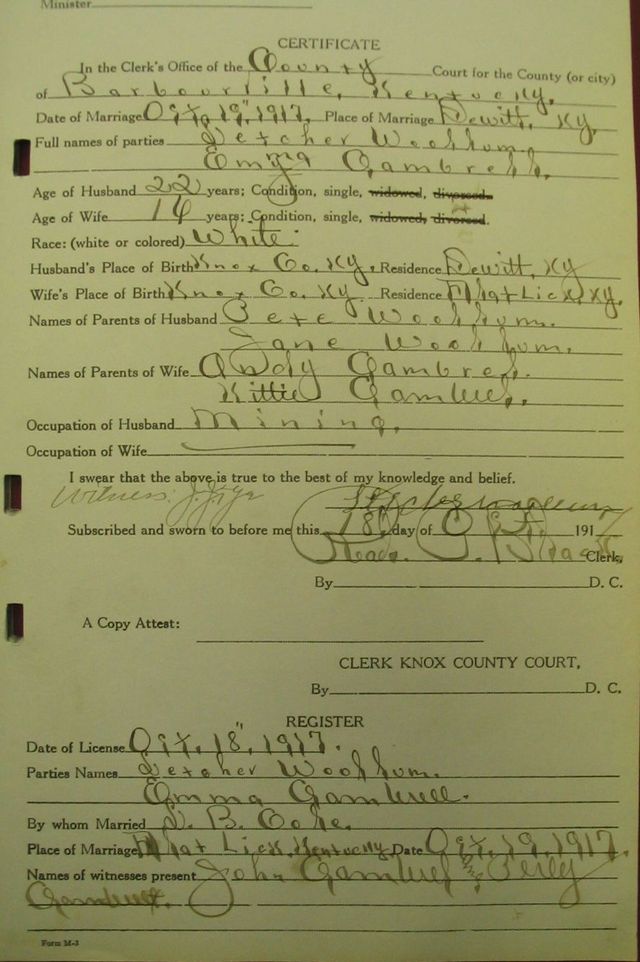 Minister
CERTIFICATE
In the Clerk's Office of the County Court for the County (or city)
of Barbourville, Kentucky.
Date of Marriage Oct. 19", 1917, Place of Marriage Dewitt, Ky.
Full names of parties Letcher Woollum.
Emma Gambrell.
Age of Husband 22 years; Condition, single, widowed, divorced.
Age of Wife 16 years; Condition, single, widowed, divorced.
Race: (white or colored) White.
Husband's Place of Birth Knox Co. Ky. Residence Dewitt, Ky
Wife's Place of Birth Knox Co. Ky Residence Flat Lick, Ky.
Names of Parents of Husband Pete Woollum.
Jane Woollum.
Names of Parents of Wife Andy Gambrel.
Kittie Gambrel.
Occupation of Husband Mining.
Occupation of Wife
I swear that the above is true to the best of my knowledge and belief.
Witness:
Subscribed and sworn to before me this 18, day of Oct. 1917
Clerk,
By D. C.
A Copy Attest:
CLERK KNOX COUNTY COURT,
By D. C.
REGISTER
Date of License Oct. 18", 1917.
Parties Names Letcher Woollum.
Emma Gambrell.
By whom Married B. Cole.
Place of Marriage Flat Lick, Kentucky Date Oct. 19, 1917.
Names of witnesses present John Gambrel &
Gambrel.
Form M-3